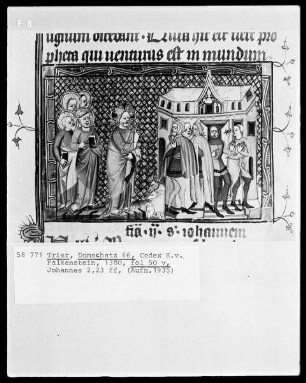 signum dicebant. Quia hic est vere pro
pheta qui venturus est in mundum
s. iohannem
58 771 Trier, Domschatz 66, Codex K.v.
Falkenstein, 1380, fol 50 v,
Johannes 2,23 ff, (Aufn.1935)